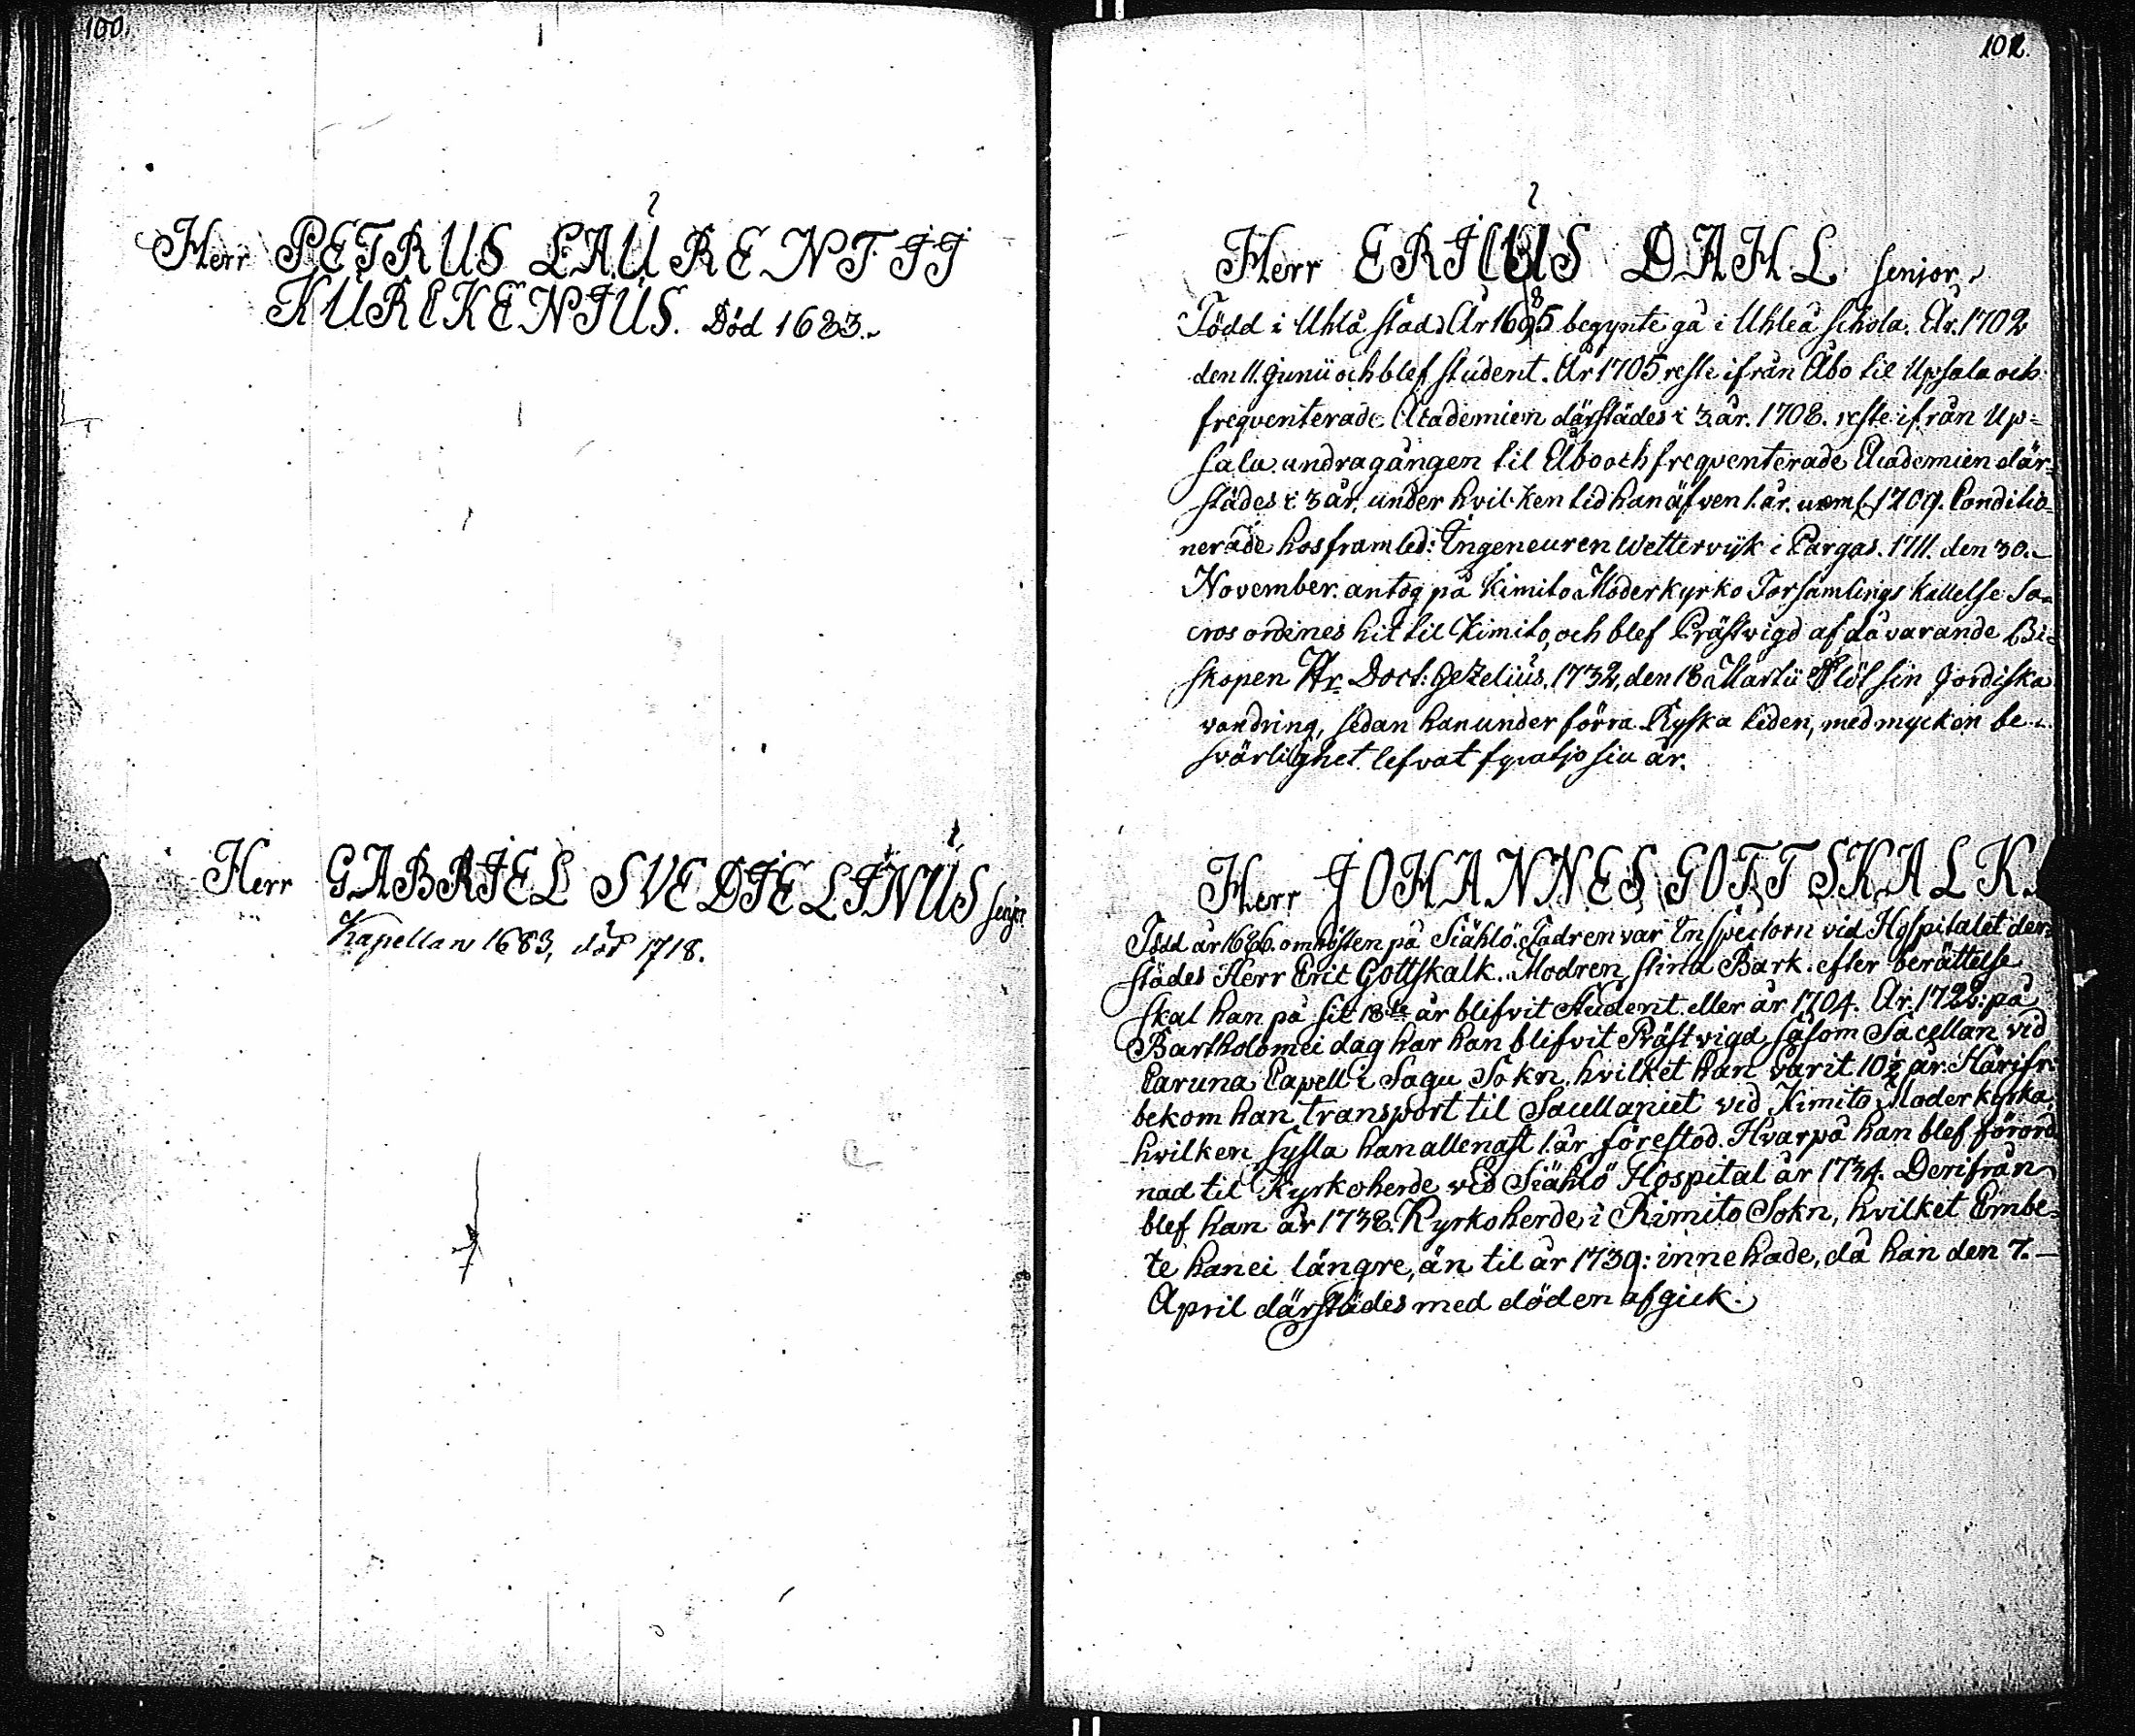 100.
Herr PETRUS LAURENTII
KURCKENIUS. Död 1683.
Herr GABRIEL SVEDJELINUS senjor
Kapellan 1683, död 1718.
101.
Herr ERICUS DAHL senior.
Född i Uhlå stad År 1685 begynte gå i Uhleå schola. År. 1702
den 11. Junii och blef student. År 1705 reste ifrån Åbo til Upsala och
freqventerade Academien därstädes i 3 år. 1708. reste ifrån Up=
sala andragången til Åbo och freqventerade Academien där=
städes i 3 år, under hvilken tid han äfven 1. år. näml. 1709. Conditio=
nerade hos framled: Ingeneuren Wetterwijk i Pargas. 1711. den 30.
November. antog på Kimito Moderkyrko Församlings kallelse Sa=
cros ordines hit til Kimito, och blef Prästvigd af då varande Bi=
skopen Hr. Doct: Gezelius. 1732, den 18 Martii slöt sin Jordiska
vandring, sedan han under förra Ryska tiden, med mycken be=
svärlighet lefvat fyratjo siu år.
Herr JOHANNES GOTTSKALK.
Född år 1686. om hösten på Siählö. Fadren var Inspectorn vid Hospitalet der=
städes Herr Eric Gottskalk. Modren Stina Bark. efter berättelse
skal han på sit 18de år blifvit Student eller år 1704. År. 1722: på
Bartholomei dag har han blifvit Prästvigd, såsom Sacellan vid
Caruna Capell i Sagu Sokn, hvilket han varit 10½ år. Härifr:
bekom han transport til Sacellaniet vid Kimito Moderkyrka,
hvilken sysla han allenast 1. år förestod. Hvarpå han blef förord=
nad til Kyrkoherde vid Siählö Hospital år 1734. Derifrån
blef han år 1738. Kyrkoherde i Rimito Sokn, hvilket Embe=
te han ei längre, än til år 1739: innehade, då han den 7.
April därstädes med döden afgick.